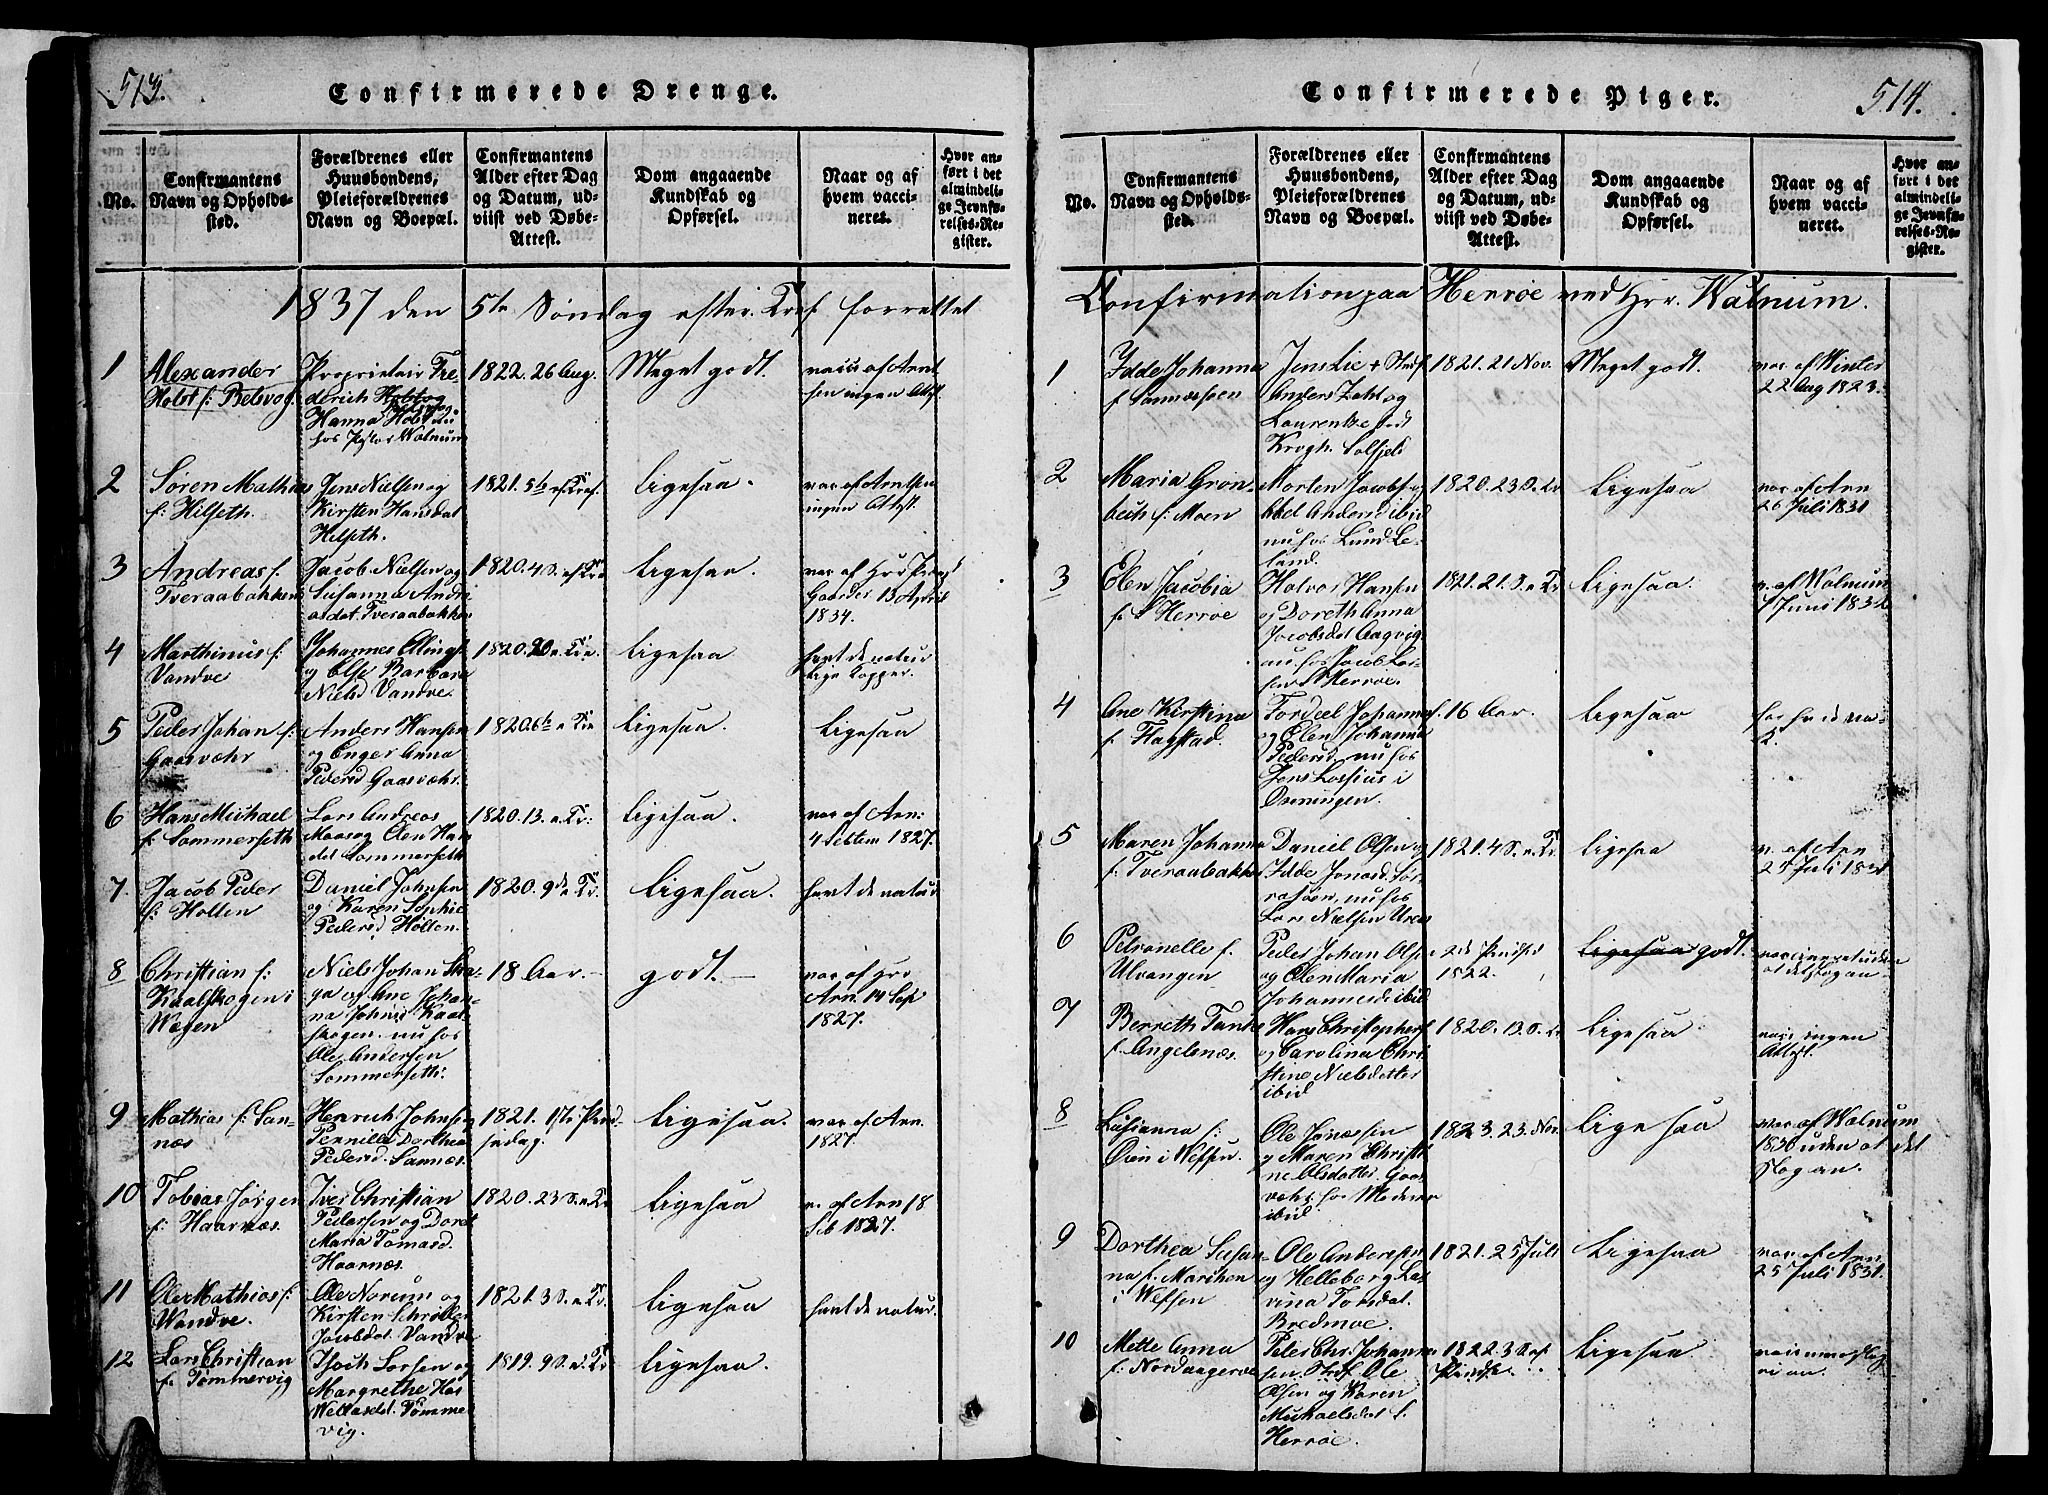 513.
Confirmerede Drenge.
No.
Confirmantens
Navn og Opholds-
sted.
Forældrenes eller
Huusbondens,
Pleieforældrenes
Navn og Boepæl.
Confirmantens
Alder efter Dag
og Datum, ud-
viist ved Døbe-
Attest.
Dom angaaende
Kundskab og
Opførsel.
Naar og af
hvem vacci-
neret.
Hvor an-
ført i det
almindeli-
ge Jevnfø-
relses-Re-
gister.
1837 den 5te Søndag efter Tref. forrettet
1
Alexander
Holst f: Belsvog
Proprietair Fre-
derich Holst og
Hanna Holst
hos Pastor Walnum
1822. 26 Aug.
Meget godt.
ingen Attst.
2
Søren Mathias
f: Hilseth.
Jens Nielsen og
Kirsten Hansdat
Hilseth.
1821. 5te ef. Tref.
Ligesaa.
vac. af Arntsen
ingen Attst.
3
Andreas f:
Tveraabakken
Jacob Nielsen og
Susanna Andre
asdat. Tveraabakken
1820. 4 S. ef. Tr.
Ligesaa.
13 April
1834.
4
Marthinus f:
Vandve
Johannes
og Else Barbara
Nielsd Vandve.
1820. 20 e. Tr.
Ligesaa
havt de natur
lige Kopper.
5
Peder Johan f:
Gaasvæhr
Anders Hansen
og Enger Anna
Pedersd Gaasvæhr.
1820. 6te e Tr
Ligesaa.
Ligesaa
6
Hans Michael
f: Sommerseth
Lars Andreas
Maas og Elen Han
dat Sommerseth
1820. 13. e. Tr:
Ligesaa.
vac. af Arn:
4 Septem 1827.
7.
Jacob Peder
f: Holten
Daniel Johnsen
og Karen Sophie
Pedersd Holten.
1820. 9de e Tr.
Ligesaa.
havt de natur.
8
Christian f:
Kaalskogen i
Wegen
Niels Johan
og Ane Johan-
na Johnsd Kaal
skogen. nu hos
Ole Andersen
Sommerseth.
18 Aar.
godt.
vac. af Hrr
Arn. 14 Sep
1827.
9
Mathias f: San-
næs
Henrich Johnsen
Pernille Dorthea
Pedersd. Sannæs.
1821.
Ligesaa.
vac. af Arn.
1827.
10
Tobias Jørgen
f: Haarnæs.
Iver Christian
Pedersen og Doret
Maria Tomasd.
Haarnæs.
1820. 23 S. e. Tr
Ligesaa
v. af Arn 18
Seb 1827.
11
Ole Mathias f:
Wandve.
Ole Norum og
Kirsten
Jacobdat. Vandve
1821. 3 S. e. Tr.
Ligesaa
havt de natur.
12
Lars Christian
f: Tømmervig
Larsen og
Margrethe
Tømmer
vig.
1819. 9 S. e. Tr
Ligesaa.
514.
Confirmerede Piger.
No.
Confirmantens
Navn og Opholds-
sted.
Forældrenes eller
Huusbondens,
Pleieforældrenes
Navn og Boepæl.
Confirmantens
Alder efter Dag
og Datum, ud-
viist ved Døbe-
Attest.
Dom angaaende
Kundskab og
Opførsel.
Naar og af
hvem vacci-
neret.
Hvor an-
ført i det
almindeli-
ge Jevnfø-
relses-Re-
gister.
Confirmation paa Herrøe ved Hrr. Walnum.
1
Idde Johanna
f: Sannessøen
Jens Lie + Stif.
Anders Zahl og
Laurentze
Krogh. Solfjeld
1821. 21 Nov.
Meget godt.
vac. af Winter
22 Aug 1823.
2
Maria Grøn-
bech f: Moen
Morten Jacobs og
Abel Andersd ibid
nu hos Lund Le-
land.
1820. 23 S. e. Tr
Ligesaa
vac. af Arn
26 Juli 1831
3
Elen Jacobia
f: S Herrøe
Halvor Hansen
og Doreth Anna
Jacobsdat Aagvig
nu hos Jacob Lar-
sen S Herrøe.
1821. 21. S. e Tr
Ligesaa.
v. af Walnum
7 Juni 1832
4
Ane Kirstina
f. Flagstad.
Tordeel Johannes.
og Elen Johanna
Pedersd. nu hos
Jens Lossius i
16 Aar.
Ligesaa
5
Maren Johanna
f: Tveraabakken
Daniel Olsen og
Idde Jonasd.
nu hos
Lars Nielsen
1821. 4 S. e. Tr.
Ligesaa
v. af Arn
25 Juli 1831
6
Petronelle f.
Ulvangen
Peder Johan Ols
og Elen Maria
Johannesd ibid
2de
1822.
Ligesaa godt.
at det slog an
7
Berreth
f. Angelsnæs.
Hans Christophers
og Carolina Chri-
stine Nielsdatter
ibid
1820. 13. S. Tr
Ligesaa
vac. ingen
Attest.
8
Lusianna f:
Øien i Wefsen.
Ole Jonassen
og Maren Christi
ne Olsdatter. Gaas
væhr. hos
ibid
1823. 23. Nov.
Ligesaa
vac. af Walnum
1836 uden at det
slog an.
9
Dorthea Susan-
na f. Marihen
i Wefsen
Ole Andersen
og Helleborg La-
vina Tomsdat.
Bredmoe.
1821. 25 Juli
Ligesaa
vac. af Arn
25 Juli 1831.
10
Mette Anna
f: Nordaagerøe
Peter Chr. Johann
sen. Stif. Ole
Olsen og Karen
Michaelsdat f.
Herrøe.
1822. 3 S. ef.
Ligesaa.